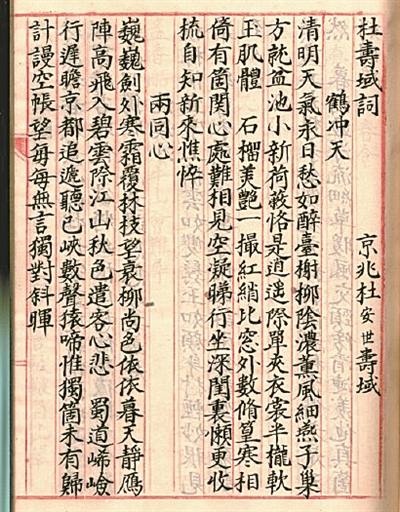 杜壽域詞 京兆杜安世壽域
鶴冲天
清明天氣永日愁如醉臺榭柳陰濃薰風細燕子巢
方就盆池小新荷蔽恰是逍遙際單夾衣裳半櫳軟
玉肌體 石榴美艷一撮紅綃比窓外數脩篁寒相
倚有箇関心處難相見空凝睇行坐深閨裏懶更收
梳自知新來憔悴
兩同心
巍巍劍外寒霜覆林枝望衰柳尚色依依暮天靜鴈
陣高飛入碧雲際江山秋色遣客心悲 蜀道崎嶮
行遲瞻京都追遞聽巴峽數聲猿啼惟獨箇未有歸
計謾空悵望每每無言獨對斜暉